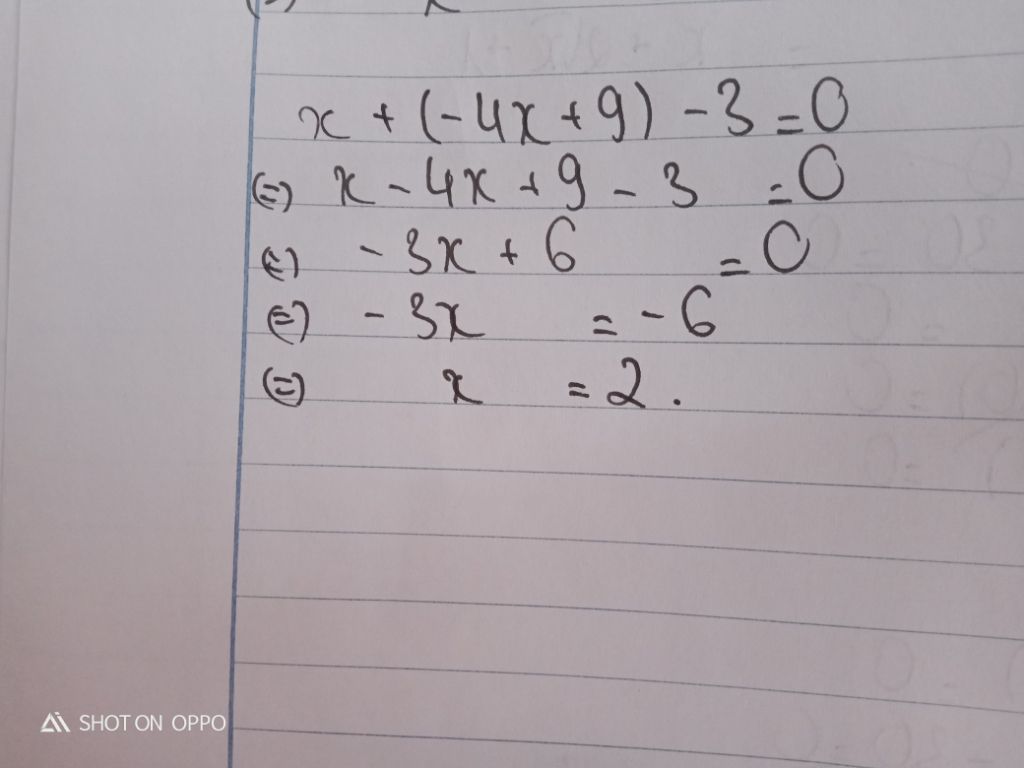 x + (-4x + 9) - 3 = 0
(=) x - 4x + 9 - 3 = 0
(=) - 3x + 6 = 0
(=) - 3x = - 6
(=) x = 2 .
SHOT ON OPPO